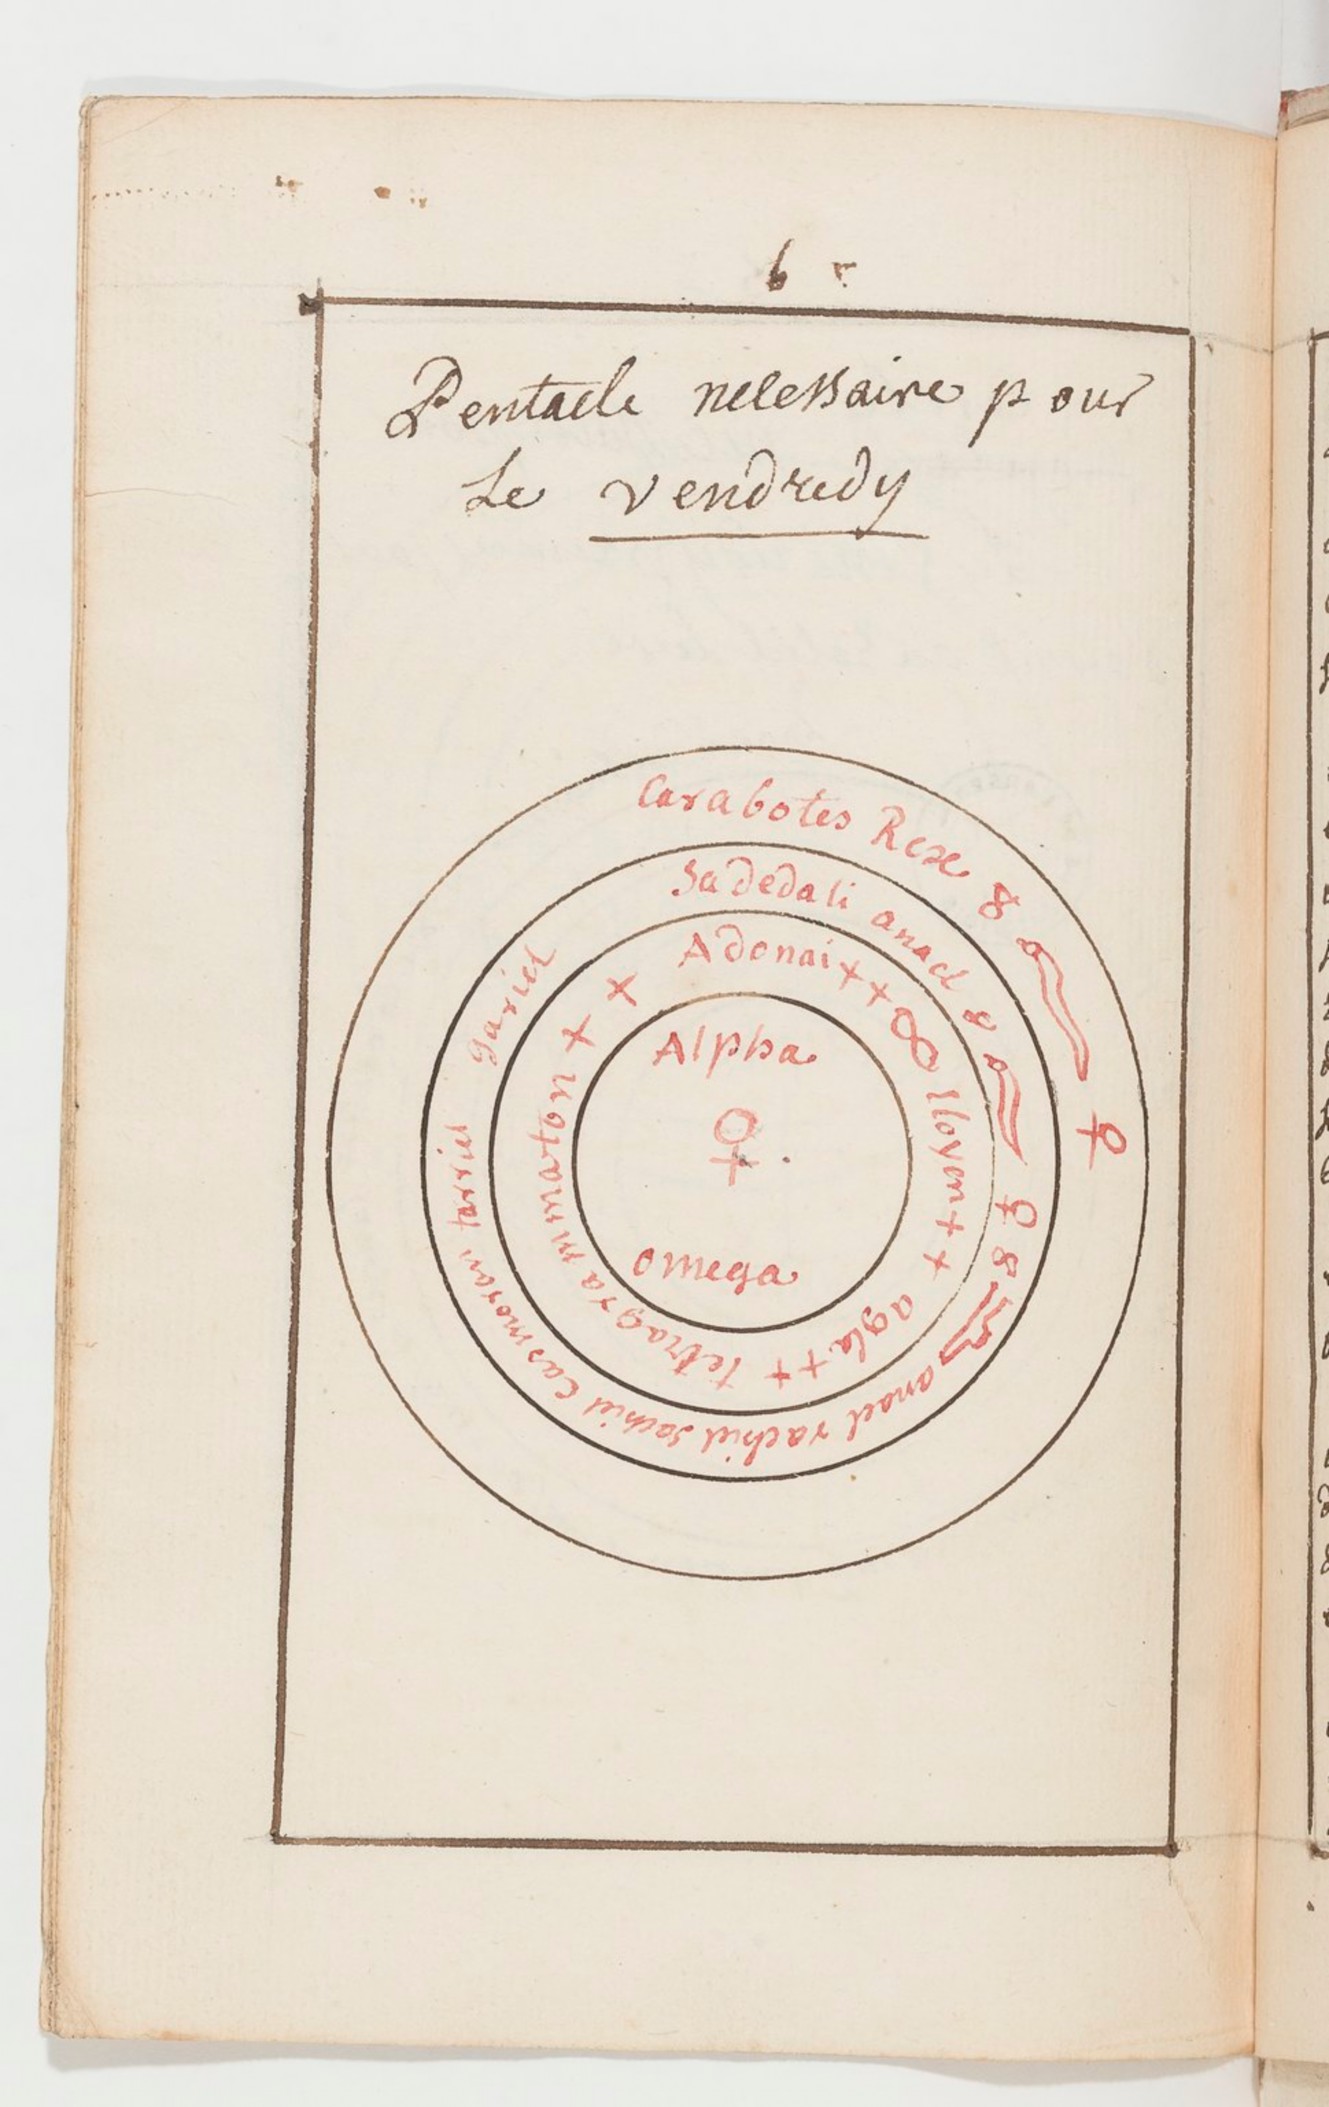 6
Pentacle necessaire pour
Le vendredy
Carabotes Rex 8 ♀
Sadedali anael 8 ♀ 8 anael rachiel sachiel Carmoran tarriel gariel
Adonai ++ lloyem ++ agla ++ tetragrammaton ++
Alpha
♀
omega